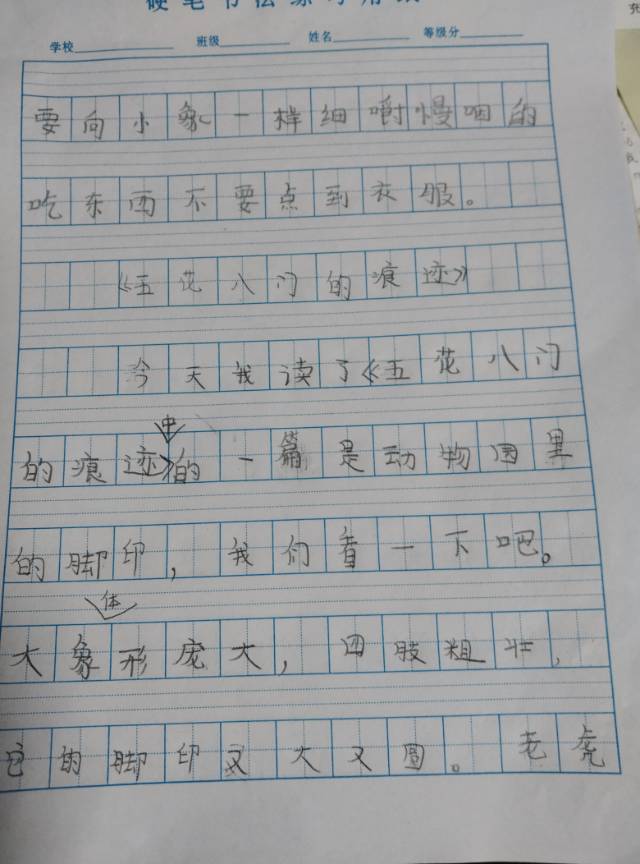 硬笔书法练习用纸
学校 班级 姓名 等级分
要向小象一样细嚼慢咽的
吃东西不要点到衣服。
《五花八门的痕迹》
今天我读了《五花八门
的痕迹》中的一篇是动物园里
的脚印,我们看一下吧。
大象体形庞大,四肢粗壮,
它的脚印又大又圆。老虎